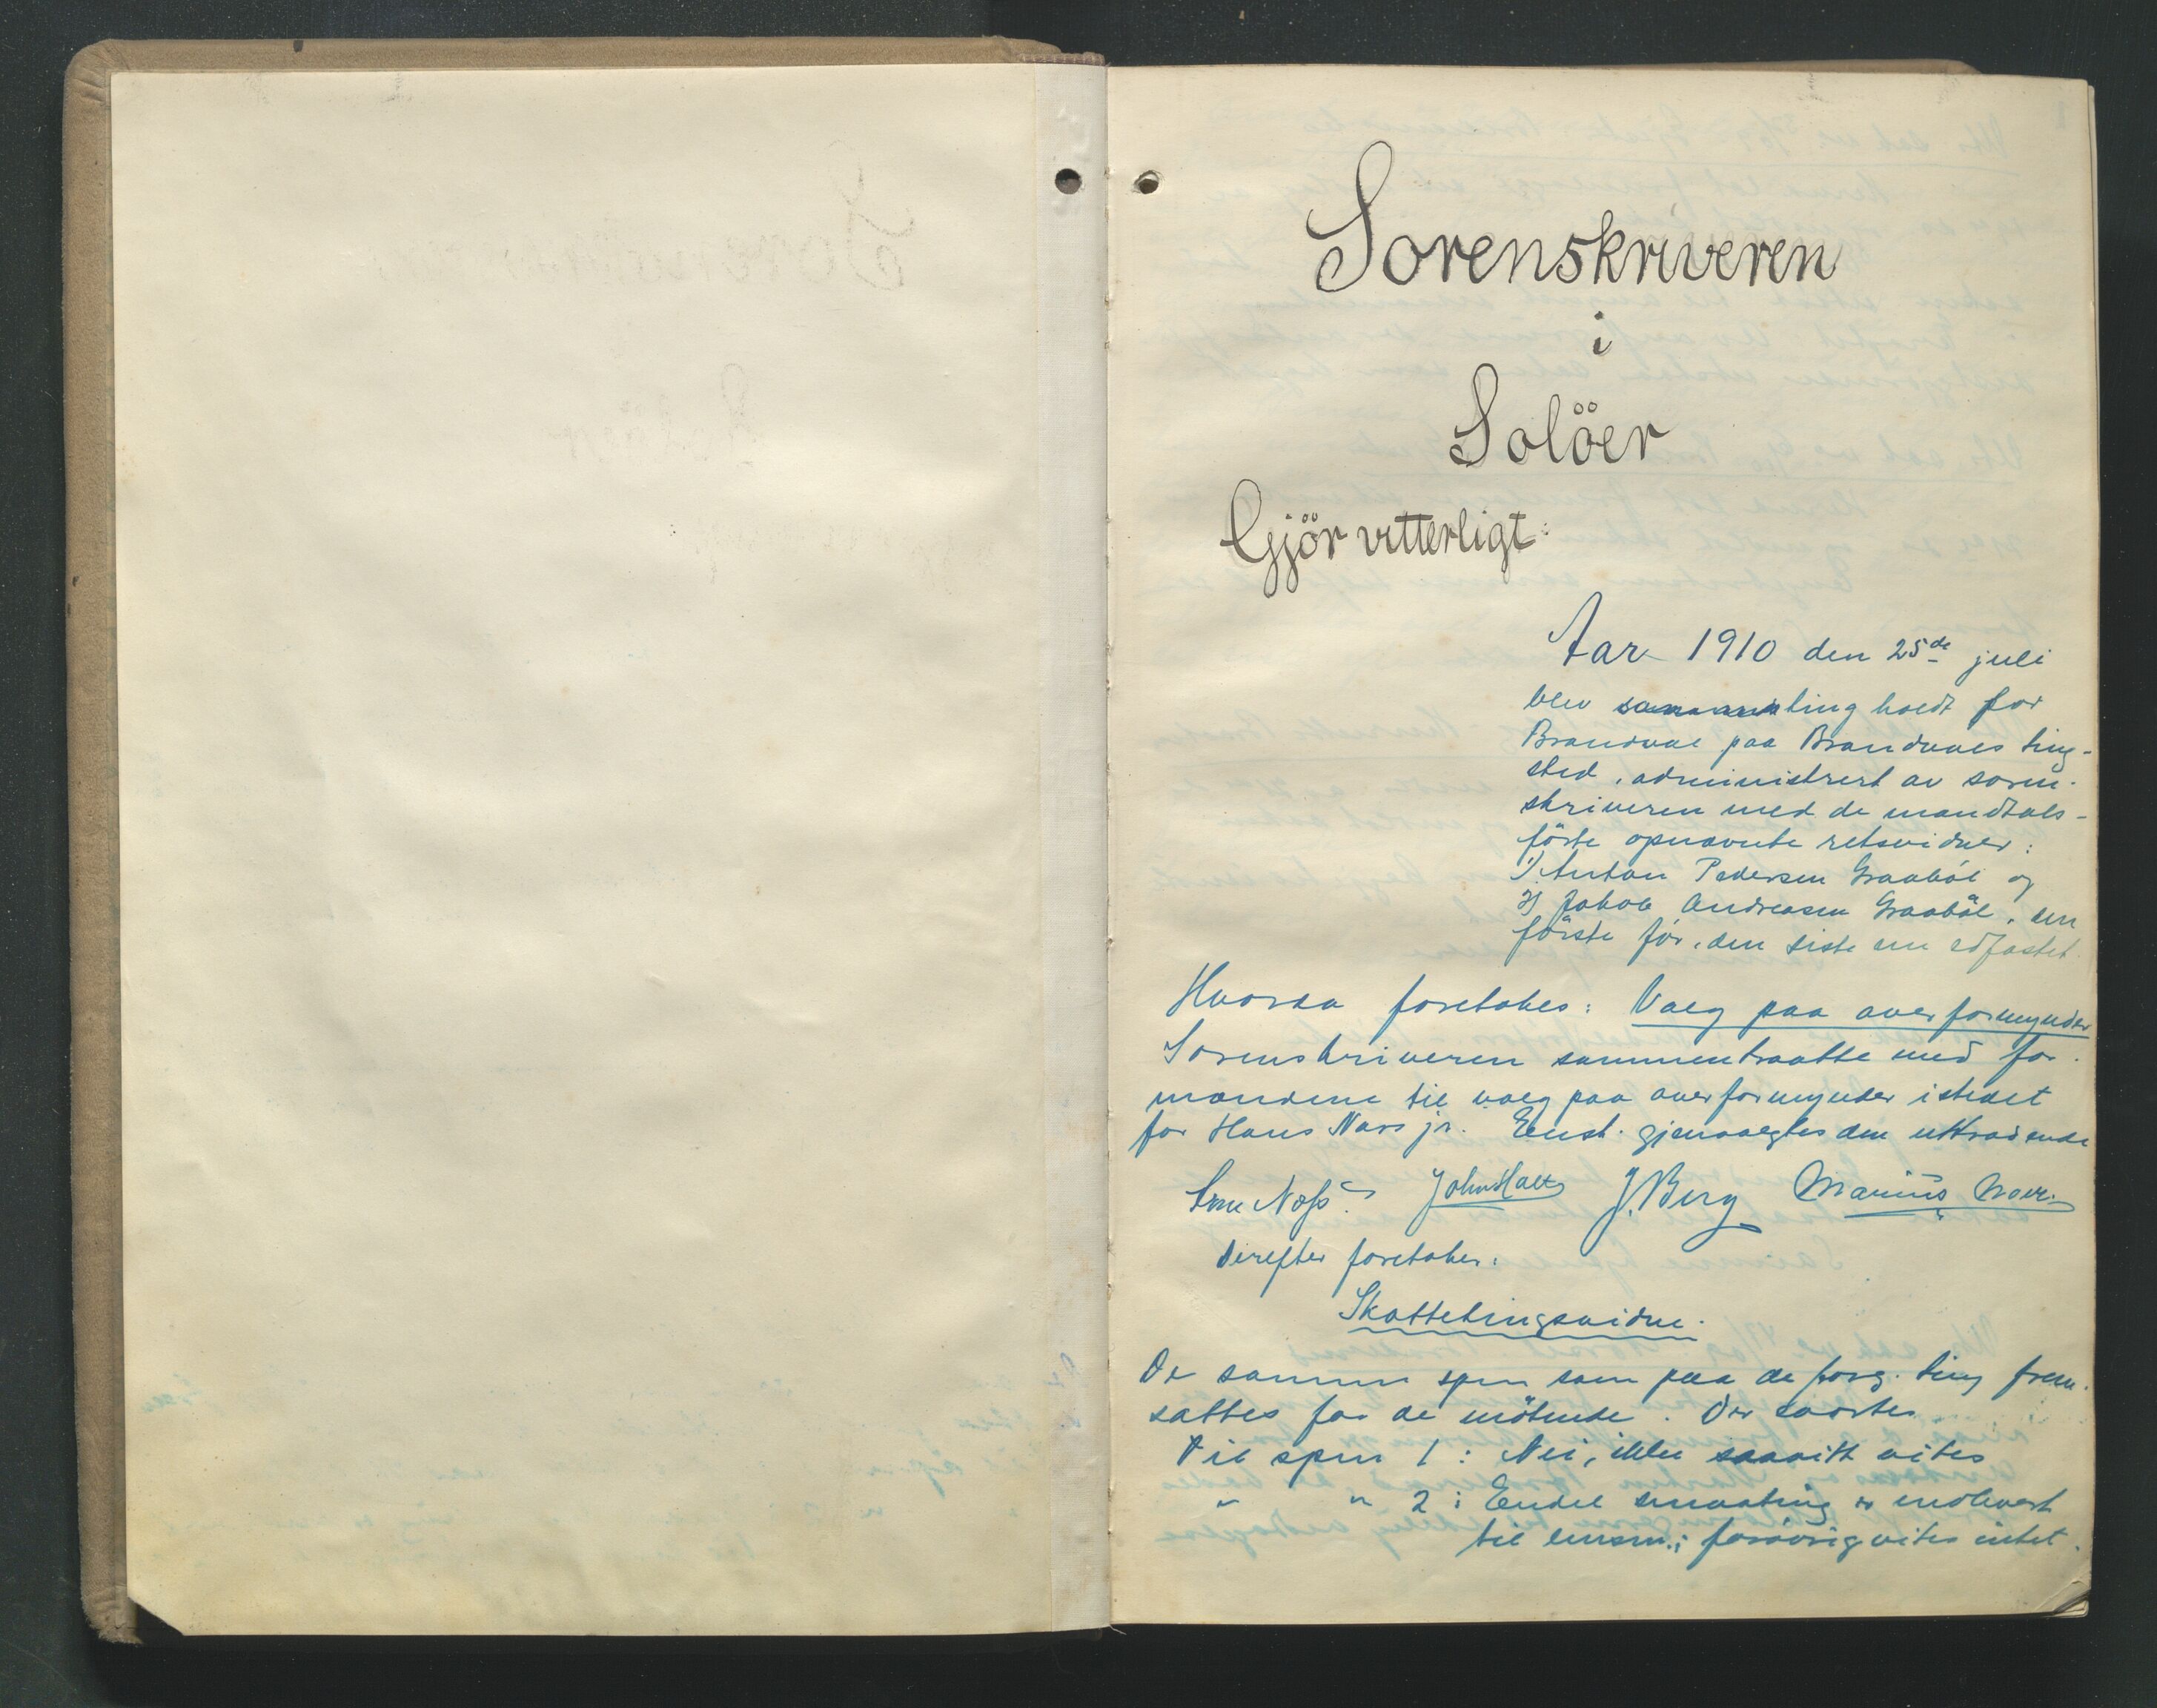 Sorenskriveren
i
Solöer
Gjör vitterligt:
Aar 1910 den 25de juli
blev ting holdt for
Brandval paa Brandvals ting-
sted, administrert av soren-
skriveren med de mandtals-
förte opnævnte retsvidner:
1) Anton Pedersen Graaböl og
2) Jakob Andreasen Graaböl, den
förste för, den siste nu edfæstet.
Hvorda foretokes: Valg paa overformynder
Sorenskriveren sammentraatte med for-
mændene til valg paa overformynder istedet
for Hans Næss jr. Enst. gjenvalgtes den uttrædende
Næss John Holt J. Berg Marius
Derefter foretokes:
Skattetingsvidne.
De samme spm som paa de forg. ting frem-
sattes for de mötende. Der svartes
Til spm 1: Nei, ikke saavitt vites
" " 2: Endel smaating er indlevert
til lensm.; forövrig vites intet.